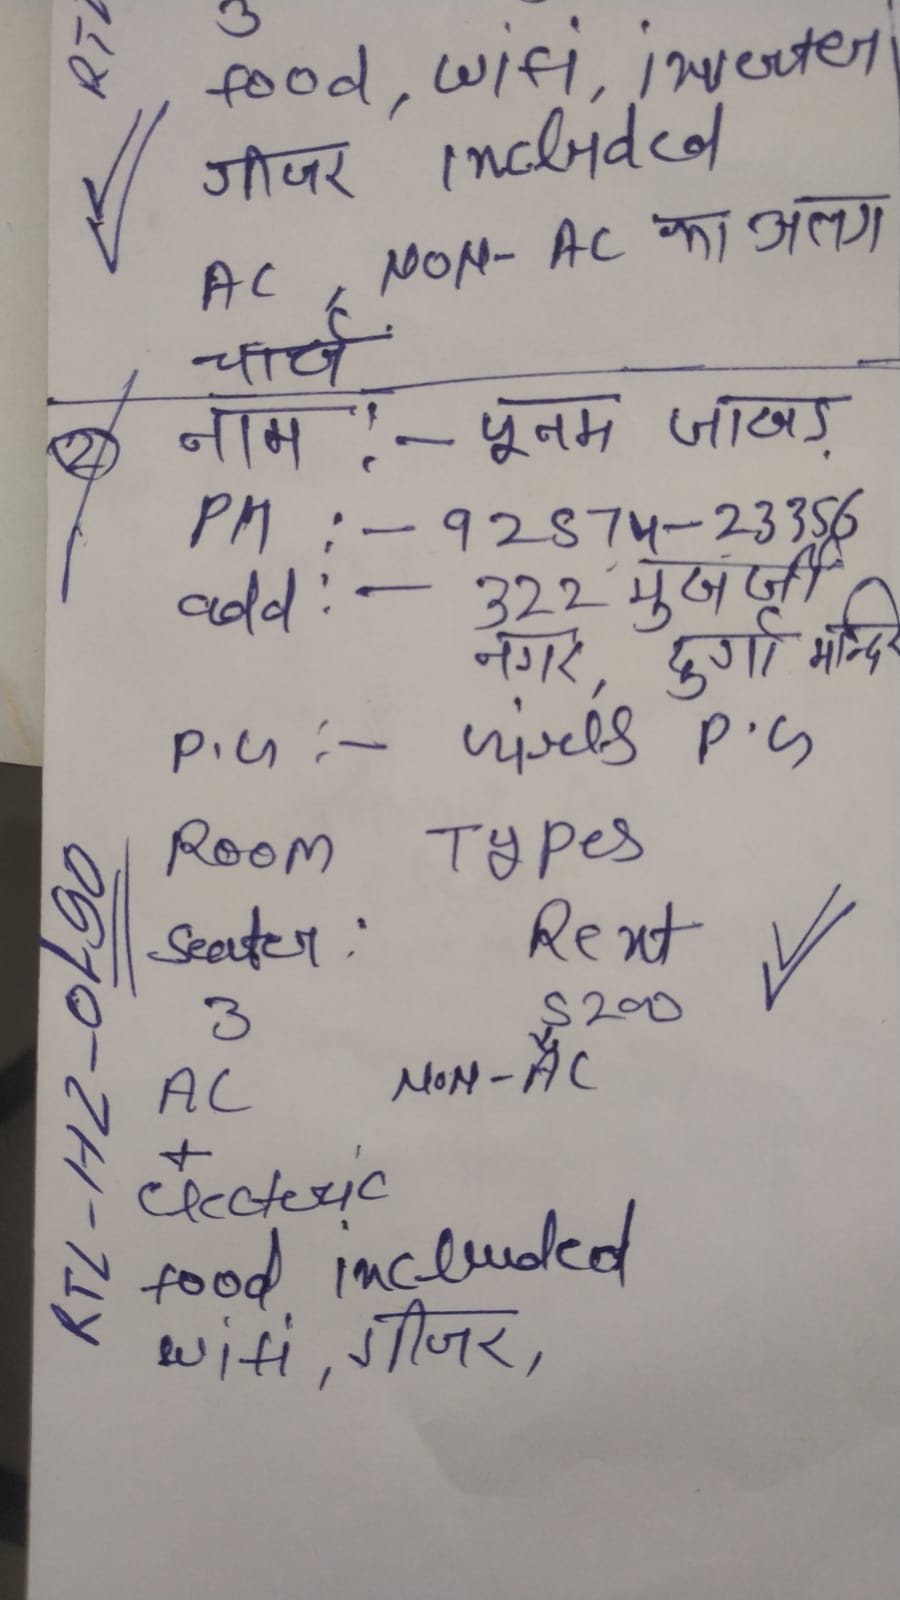 3
food, wifi, inverter
गीजर included
AC, NON-AC का अलग
चार्ज
② नाम :- पूनम जाखड़
PH :- 92574-23356
add :- 322 मुखर्जी
नगर, दुर्गा मन्दिर
P.G :- girls P.G
Room Types
Seater: Rent
3 5200
AC NON-AC
+
electeric
food included
wifi, गीजर,